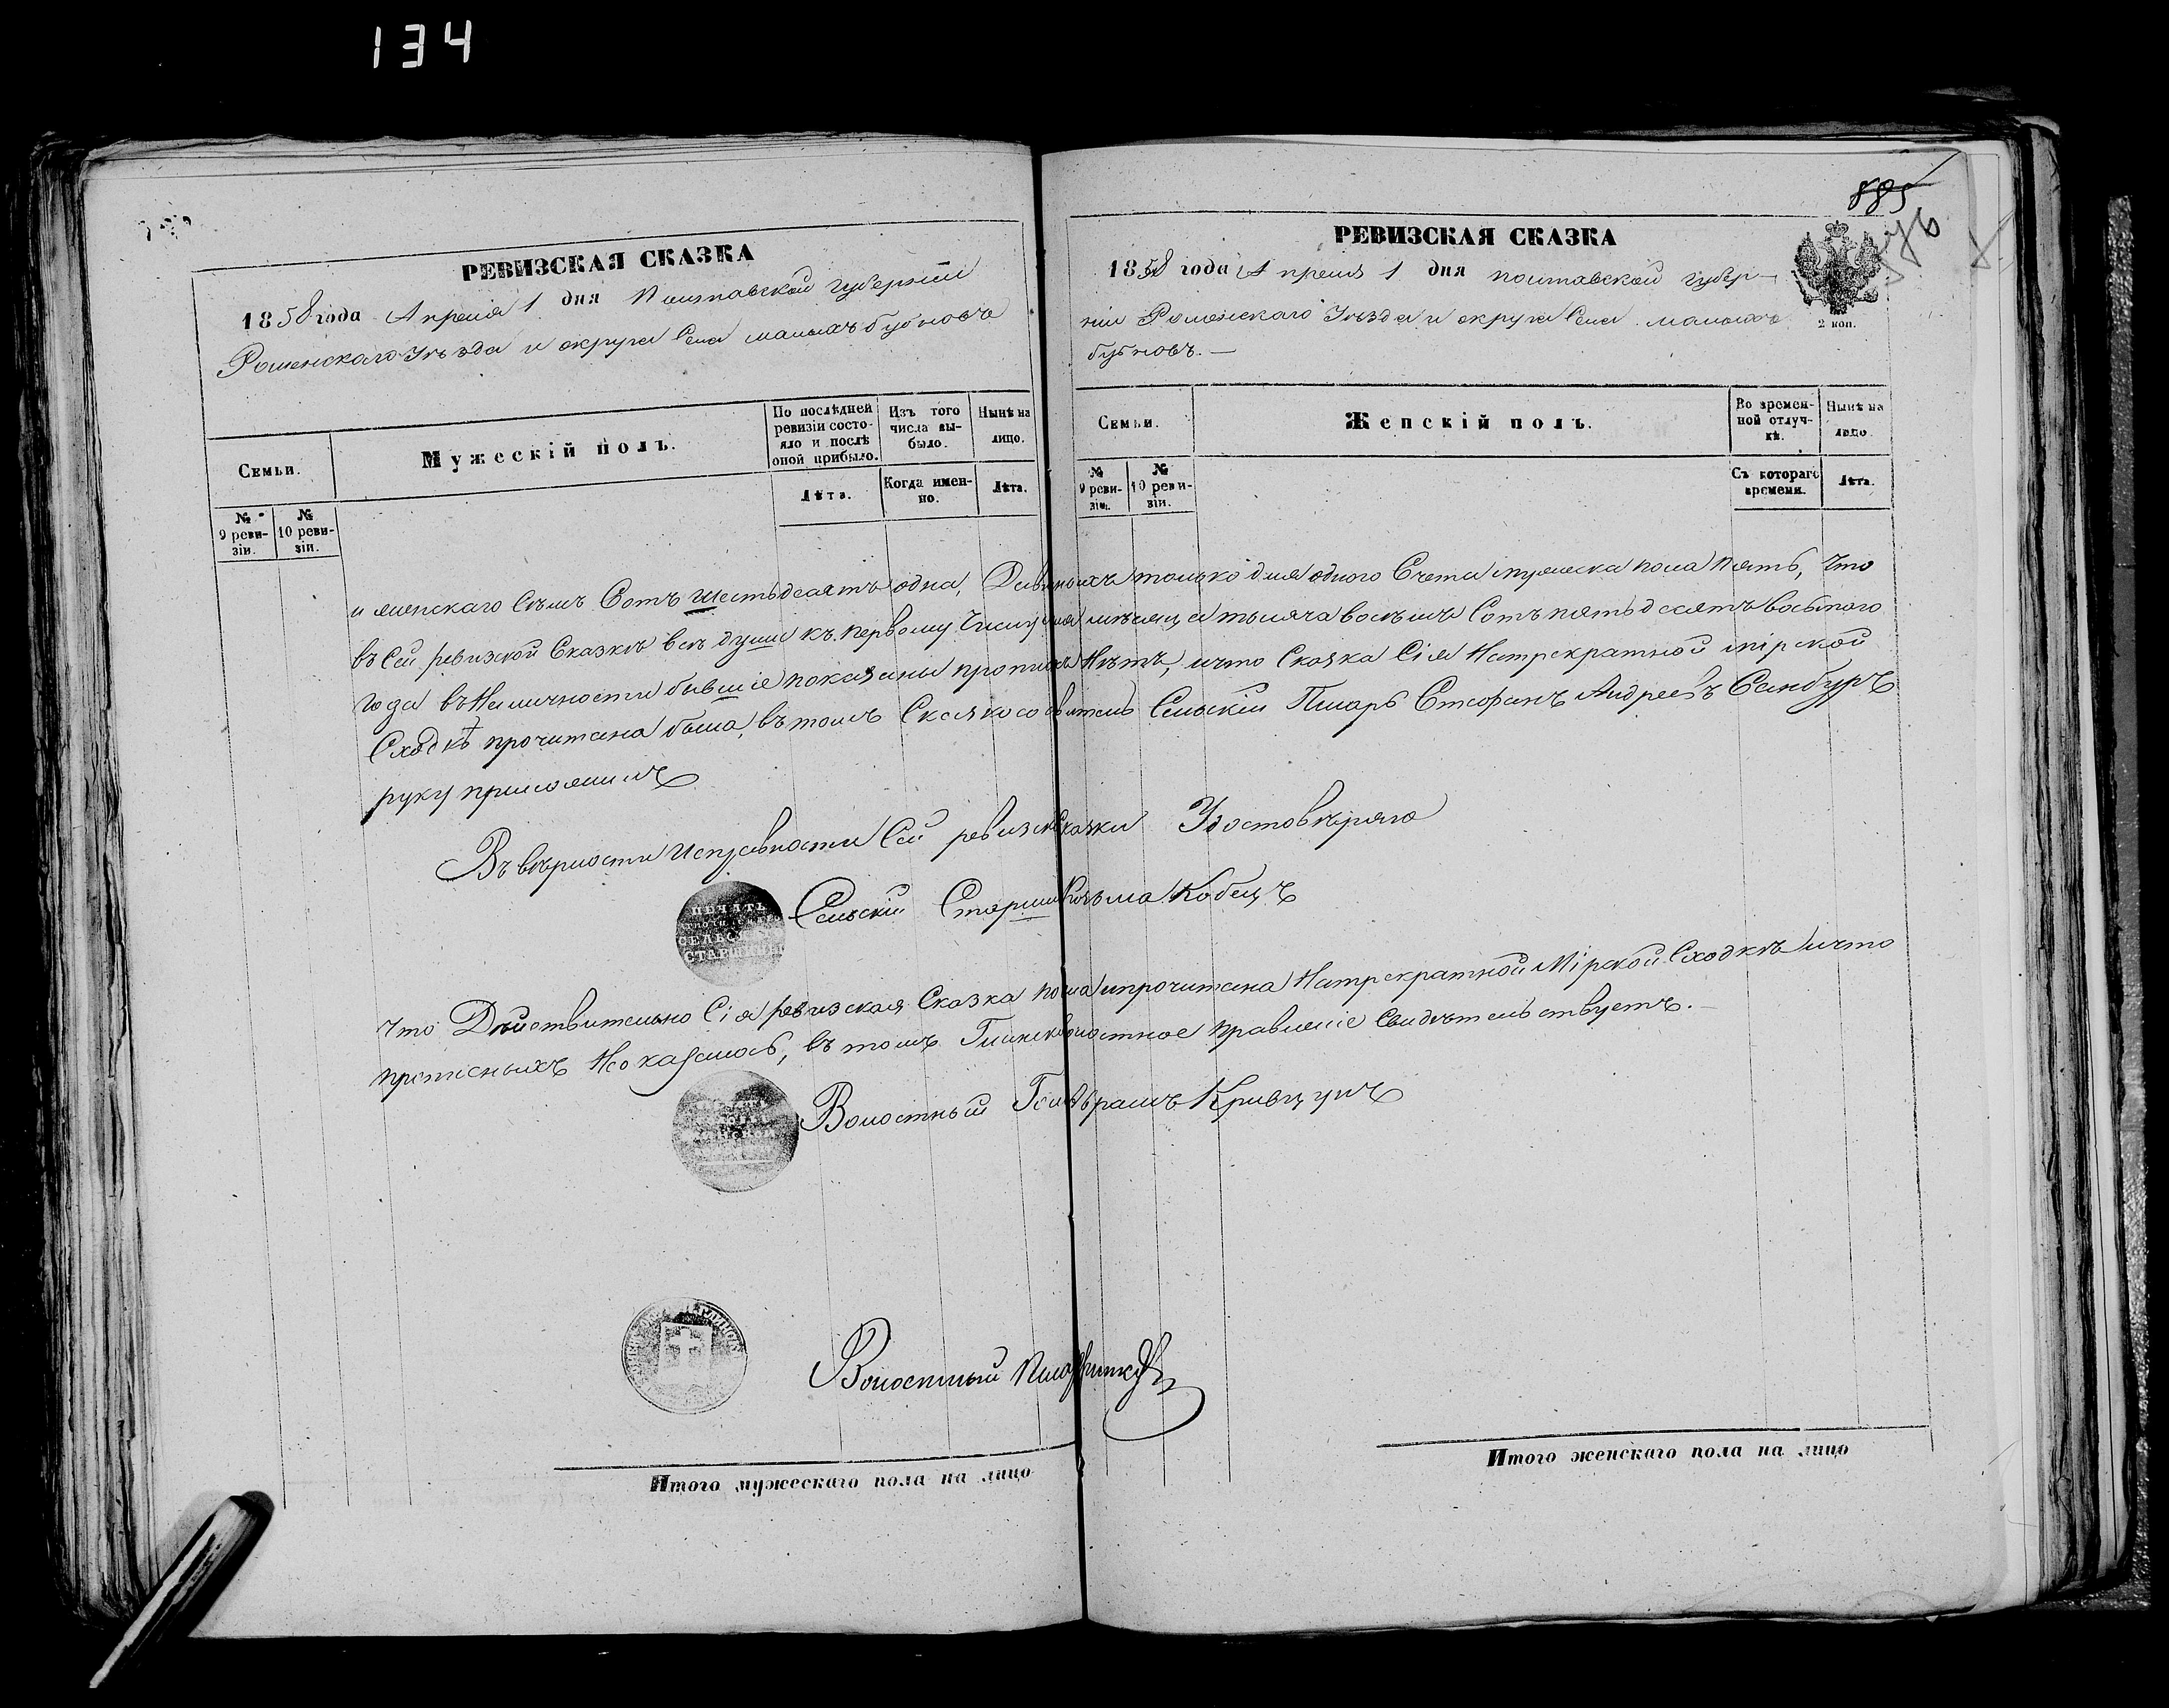 134
885
РЕВИЗСКАЯ СКАЗКА
1858 года Апреля 1 дня Полтавской губерніи
Роменского Уѣзда и округа Села малыхъ бубновъ
Семьи.
Мужескій полъ.
По послѣдней ревизіи состояло и послѣ оной прибыло.
Изъ того числа выбыло.
Нынѣ на лицо.
№ 9 ревизіи.
№ 10 ревизіи.
Лѣта.
Когда именно.
Лѣта.
РЕВИЗСКАЯ СКАЗКА
1858 года Апреля 1 дня полтавской губер-
ніи Роменскаго Уѣзда и округа Села малыхъ
бубновъ. —
2 коп.
Семьи.
Женскій полъ.
Во временной отлучкѣ.
Нынѣ на лицо.
№ 9 ревизіи.
№ 10 ревизіи.
Съ котораго времени.
Лѣта.
и женскаго Семъ Сотъ шестьдесятъ одна, только для одного Счета мужеска пола пять, Что
въ Сей ревизской Сказкѣ всѣ души къ первому Числу мѣсяца тысяча восемъ Сотъ пятьдесятъ восьмого
года въ Наличности бывшіе показаны нѣтъ, и что Сказка Сія На трекратной мірской
Сходкѣ прочитана была, въ томъ Сельскій Писарь Стефанъ Андреевъ Санбуръ
руку приложилъ
Въ вѣрности и исправности Сей ревизской Сказки Удостовѣряю
ПЕЧАТЬ
СТАРШИНЫ
Сельскій Старшина Козьма Кобецъ
Что Дѣйствительно Сія ревизская Сказка прочитана На трекратной Мірской Сходкѣ и что
прописныхъ Не оказалось, въ томъ волостное правленіе Свидѣтельствуетъ. —
Волостный Голова Абрамъ Кривцунъ
Волостный Писарь
Итого мужескаго пола на лицо
Итого женскаго пола на лицо